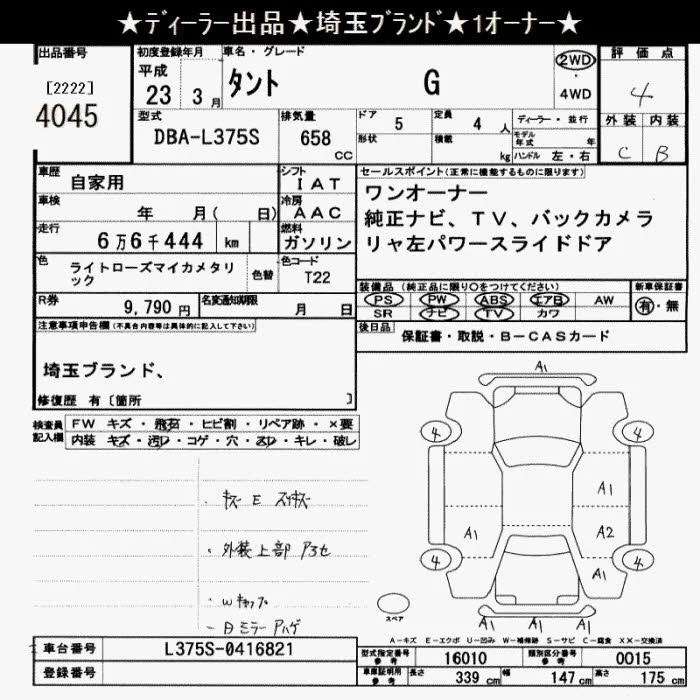 ★ディーラー出品★埼玉ブランド★1オーナー★
出品番号 初度登録年月 車名・グレード 評価点
[2222] 平成 タント G 2WD・4WD 4
4045 23 3月
型式 排気量 ドア 5 定員 4人 ディーラー・並行 外装 内装
DBA-L375S 658cc 形状 積載 kg モデル年式 年 C B
ハンドル 左・右
車歴 自家用 シフト IAT セールスポイント(正常に機能するものに限ります)
車検 年 月( 日) 冷房 AAC ワンオーナー
走行 6万6千444 km 燃料 ガソリン 純正ナビ、TV、バックカメラ
リヤ左パワースライドドア
色 ライトローズマイカメタリック 色替 色コード T22
装備品(純正品に限り○をつけてください) 新車保証書
PS PW ABS エアB AW 有・無
SR ナビ TV カワ
R券 9,790円 名変通知期限 月 日
後日品 保証書・取説・B-CASカード
注意事項申告欄(不具合内容等は具体的に記入して下さい)
埼玉ブランド、
修復歴 有〔箇所 〕
検査員記入欄 FW キズ・飛石・ヒビ割・リペア跡・×要
内装 キズ・汚れ・コゲ・穴・スレ・キレ・破レ
・キズ E スイキズ
・外装上部 アセ
・Wキャップ
・Bミラー ハゲ
A1
4 4
A1
A1 A2
4 A1 4
A1 A1 A1
スペア
A-キズ E-エクボ U-凹み W-補修跡 S-サビ C-腐食 XX-交換済
車台番号 L375S-0416821 型式指定番号 参考 16010 類別区分番号 参考 0015
登録番号 車庫証明用 参考 長さ 339cm 幅 147cm 高さ 175cm